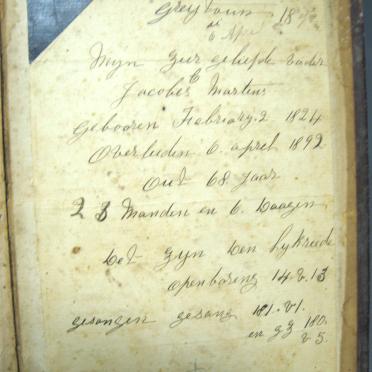 Greytown 18
6 Apr
Mijn zeer geliefde vader
Jacobes C Martins
Gebooren February 2 1824
Overleden 6 april 1892
Out 68 jaar
2 Manden en 6 Daagen
Let zyn Len lykreede
openbaring 14 v. 13
gesangen gesang 181. v1.
en gz 180.
v 5.